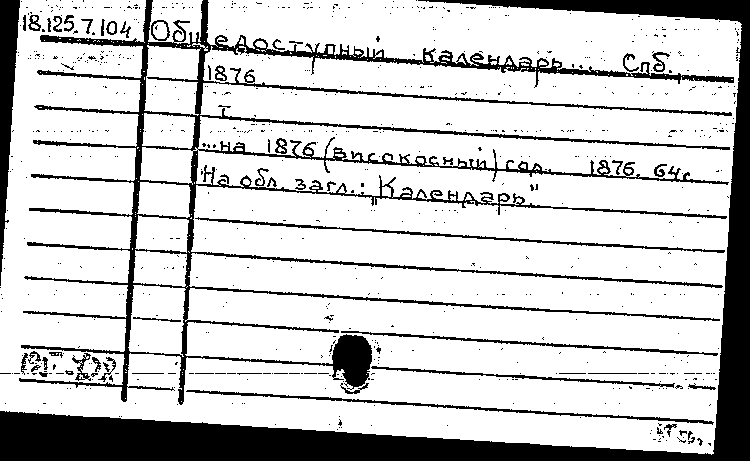 18.125.7.104. Общедоступный календарь... Спб.,
1876.
т.
...на 1876 (високосный) год. 1876. 64 с.
На обл. загл.: „Календарь."